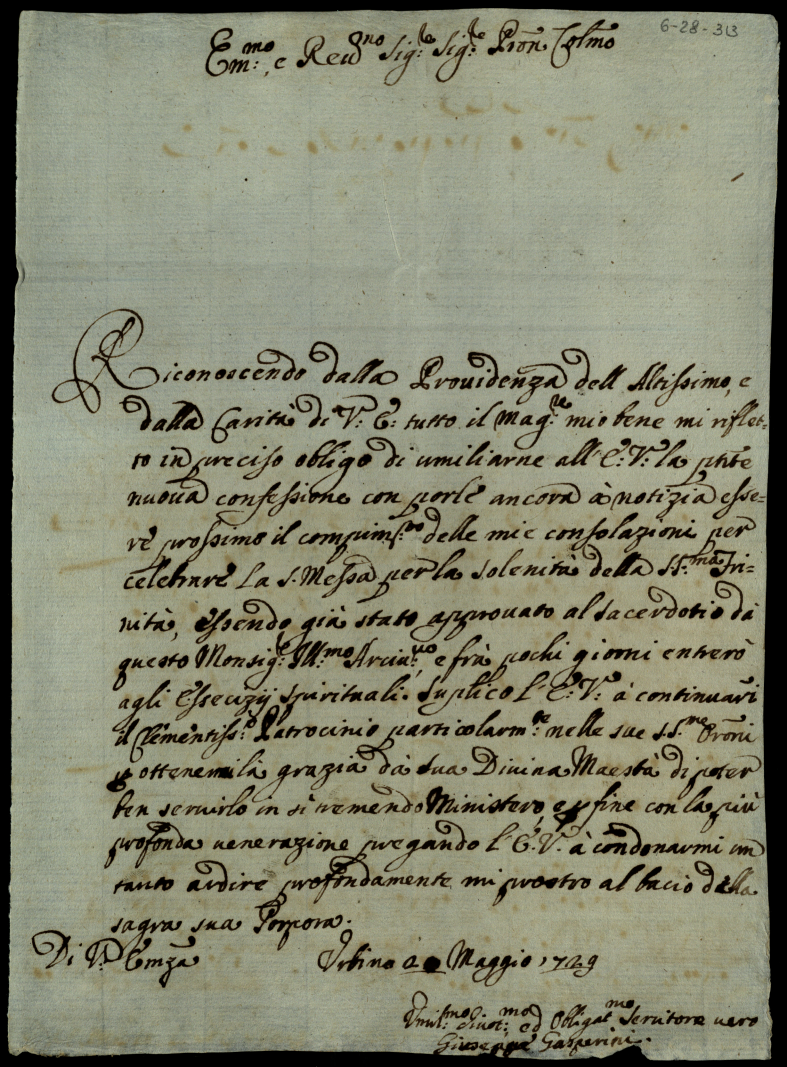 6-28-313
Em:mo, e Reudno Sig:re Sig:re Pron Colmo
Riconoscendo dalla Prouidenza dell Altissimo, e
dalla Carità di V: E: tutto il mag:re mio bene mi riflet-
to in preciso obligo di umiliarne all'E: V: la pnte
nuoua confessione con porle ancora à notizia esse-
re prossimo il compim:to delle mie consolazioni per
celebrare la S. Messa per la solenità della SS:ma Tri-
nità, essendo già stato approuato al sacerdotio da
questo Monsig:re Ill:mo Arciu:uo, e frà pochi giorni entrerò
agli essercizij spirituali. Suplico l'E: V: à continuarmi
il Clementiss:o Patrocinio particolarm:te nelle sue SS:me Oroni
p ottenermi la grazia da Sua Diuina Maestà di poter
ben seruirlo in si tremendo Ministero, e p fine con la più
profonda uenerazione pregando l'E: V: à condonarmi un
tanto ardire profondamente mi prostro al bacio della
sagra sua Porpora.
Di V: Emza Urbino Maggio 1729
Umil:mo Diuot:mo ed Obligat:mo Seruitore uero
Giuseppe Gasperini.